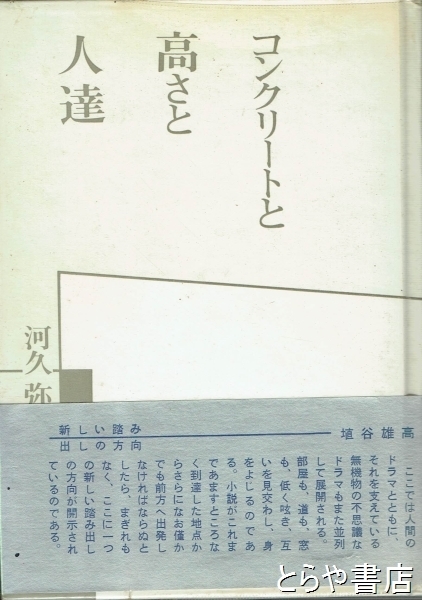 コンクリートと
高さと
人達
河久弥
新しい踏み
出しの方向
埴谷雄高
ここでは人間の
ドラマとともに、
それを支えている
無機物の不思議な
ドラマもまた並列
して展開される。
部屋も、道も、窓
も、低く呟き、互
いを見交わし、身
をよじるのであ
る。小説がこれま
であますところな
く到達した地点か
らさらになお僅か
でも前方へ出発し
なければならぬと
したら、まぎれも
なく、ここに一つ
の新しい踏み出し
の方向が開示され
ているのである。
とらや書店